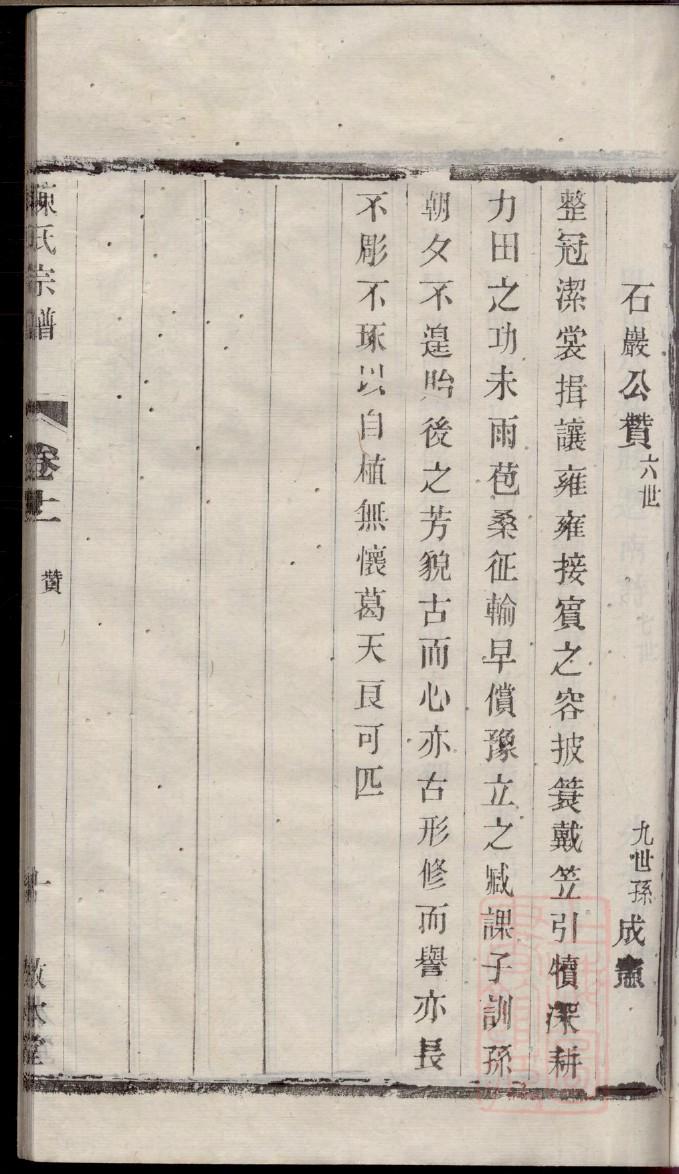 石巖公贊 六世 九世孫 成憲
整冠潔裳揖讓雍雍接賓之容披簑戴笠引犢深耕
力田之功未雨苞桑征輸早償豫立之臧課子訓孫
朝夕不遑貽後之芳貌古而心亦古形修而譽亦長
不彫不琢以自植無懷葛天良可匹
陳氏宗譜 卷上 贊 敦本堂